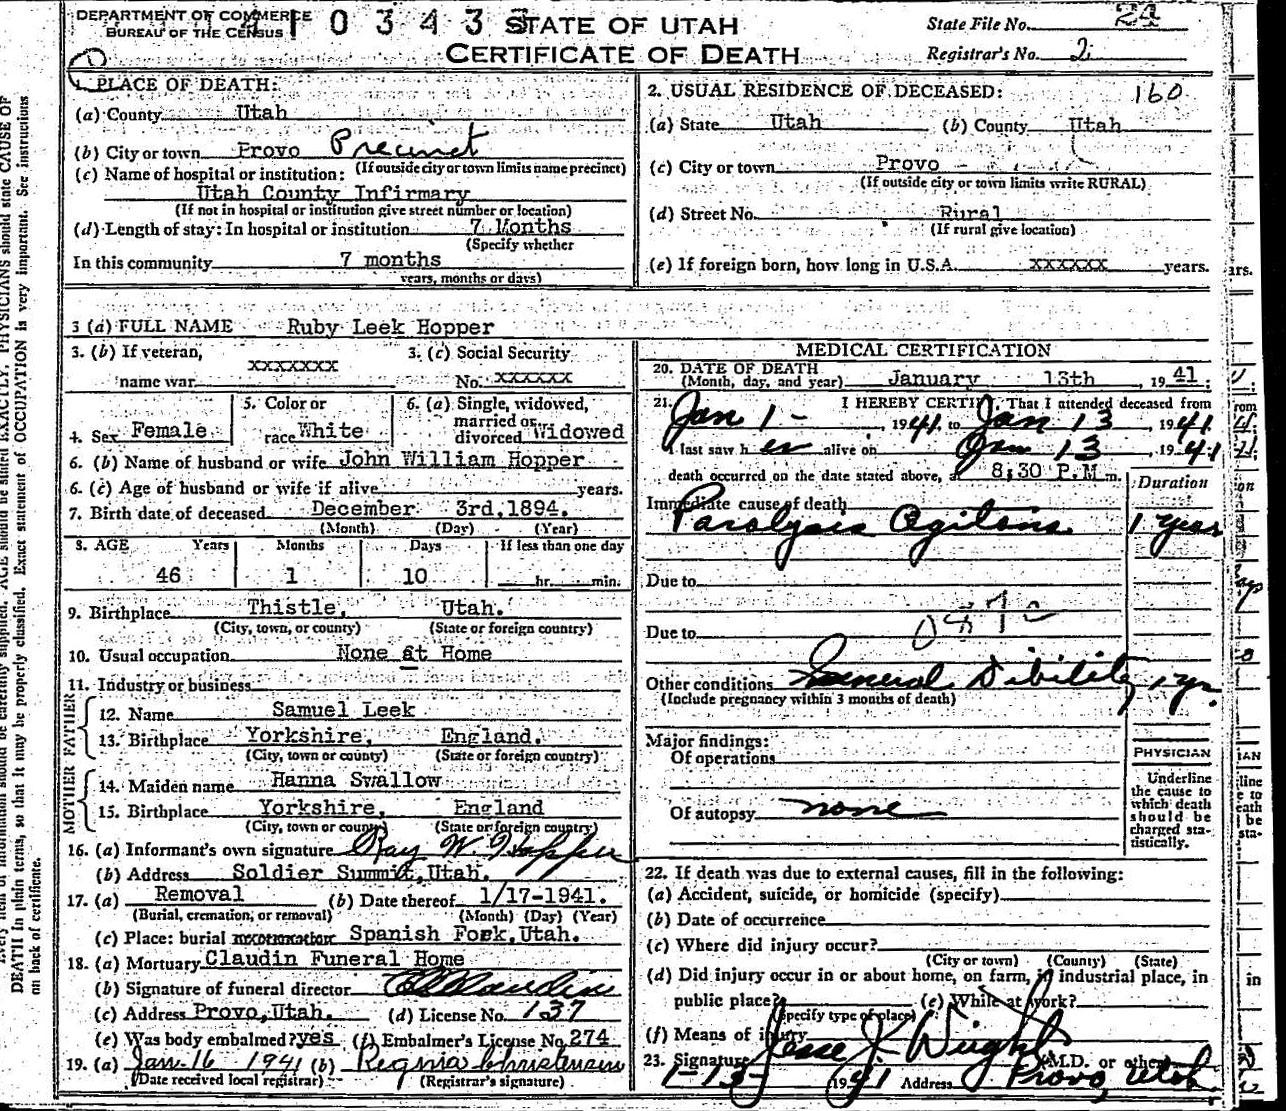 DEPARTMENT OF COMMERCE
BUREAU OF THE CENSUS
0 3 4 3
STATE OF UTAH
CERTIFICATE OF DEATH
State File No. 24
Registrar's No. 2
1. PLACE OF DEATH:
(a) County Utah
(b) City or town Provo Precinct
(If outside city or town limits name precinct)
(c) Name of hospital or institution:
Utah County Infirmary
(If not in hospital or institution give street number or location)
(d) Length of stay: In hospital or institution 7 Months
(Specify whether
In this community 7 months
years, months or days)
2. USUAL RESIDENCE OF DECEASED: 160
(a) State Utah (b) County Utah
(c) City or town Provo
(If outside city or town limits write RURAL)
(d) Street No. Rural
(If rural give location)
(e) If foreign born, how long in U.S.A. xxxxxx years.
3 (a) FULL NAME Ruby Leek Hopper
3. (b) If veteran, name war xxxxxxx
3. (c) Social Security No. xxxxxx
4. Sex Female
5. Color or race White
6. (a) Single, widowed, married or divorced Widowed
6. (b) Name of husband or wife John William Hopper
6. (c) Age of husband or wife if alive years.
7. Birth date of deceased December 3rd, 1894.
(Month) (Day) (Year)
8. AGE Years Months Days If less than one day
46 1 10 hr. min.
9. Birthplace Thistle, Utah.
(City, town, or county) (State or foreign country)
10. Usual occupation None at Home
11. Industry or business
FATHER
12. Name Samuel Leek
13. Birthplace Yorkshire, England.
(City, town or county) (State or foreign country)
MOTHER
14. Maiden name Hanna Swallow
15. Birthplace Yorkshire, England
(City, town or county) (State or foreign country)
16. (a) Informant's own signature Ray W Hopper
(b) Address Soldier Summit, Utah.
17. (a) Removal (b) Date thereof 1/17-1941.
(Burial, cremation, or removal) (Month) (Day) (Year)
(c) Place: burial Spanish Fork, Utah.
18. (a) Mortuary Claudin Funeral Home
(b) Signature of funeral director
(c) Address Provo, Utah. (d) License No. 137
(e) Was body embalmed? yes (f) Embalmer's License No. 274
19. (a) Jan 16 1941 (b) Regnia Christensen
(Date received local registrar) (Registrar's signature)
MEDICAL CERTIFICATION
20. DATE OF DEATH
(Month, day, and year) January 13th, 1941;
21. I HEREBY CERTIFY, That I attended deceased from
Jan 1 - , 1941 to Jan 13, 1941
I last saw her alive on Jan 13, 1941
death occurred on the date stated above, at 8;30 P.M m.
Duration
Immediate cause of death
Paralysis Agitans 1 year
Due to
Due to
Other conditions General Dibility 1 yr.
(Include pregnancy within 3 months of death)
Major findings:
Of operations
Of autopsy none
PHYSICIAN
Underline
the cause to
which death
should be
charged sta-
tistically.
22. If death was due to external causes, fill in the following:
(a) Accident, suicide, or homicide (specify)
(b) Date of occurrence
(c) Where did injury occur?
(City or town) (County) (State)
(d) Did injury occur in or about home, on farm, in industrial place, in
public place? (e) While at work?
(Specify type of place)
(f) Means of injury
23. Signature Jesse J. Wight (M.D. or other)
1-15- 1941 Address Provo, Utah.